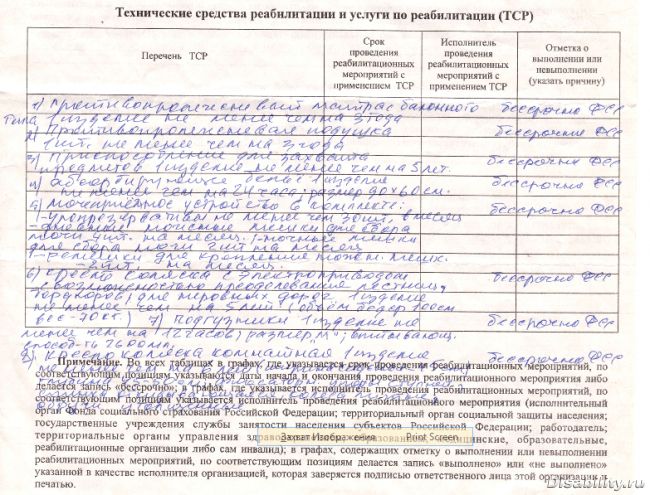 Технические средства реабилитации и услуги по реабилитации (ТСР)
Перечень ТСР
Срок проведения реабилитационных мероприятий с применением ТСР
Исполнитель проведения реабилитационных мероприятий с применением ТСР
Отметка о выполнении или невыполнении (указать причину)
1) Противопролежневый матрас баллонного бессрочно ФСС
типа 1 изделие не менее чем на 3 года
2) Противопролежневая подушка бессрочно ФСС
1 шт. не менее чем на 3 года
3) Приспособление для захвата бессрочно ФСС
предметов 1 изделие не менее чем на 5 лет.
4) абсорбирующее белье 1 изделие бессрочно ФСС
не менее чем на 24 часа размер 90х60см.
5) мочеприемное устройство в комплекте: бессрочно ФСС
1-уропрезервативы не менее чем 30шт. в месяц
-дневные ножные мешки для сбора
мочи шт. на месяц. 1-ночные мешки
для сбора мочи 2шт на месяц
1-ремешки для крепления мешк.
на месяц.
6) Кресло коляска с электроприводом бессрочно ФСС
с возможностью преодоление лестниц,
бордюров, для неровных дорог 1 изделие
не менее чем на 5 лет (объем бедер 100см
вес-70кг.) 7) Подгузники 1 изделие не бессрочно ФСС
менее чем на 12 часов, размер „ “, впитывающ.
способ-ть 2600мл.
8) Кресло коляска комнатная 1 изделие бессрочно ФСС
Примечание. Во всех таблицах в графах, где указывается срок проведения реабилитационных мероприятий, по
соответствующим позициям указываются даты начала и окончания проведения реабилитационного мероприятия либо
делается запись «бессрочно»; в графах, где указывается исполнитель проведения реабилитационных мероприятий, по
соответствующим позициям указывается исполнитель проведения реабилитационных мероприятий (исполнительный
орган Фонда социального страхования Российской Федерации; территориальный орган социальной защиты населения;
государственные учреждения службы занятости населения субъектов Российской Федерации; работодатель;
территориальные органы управления
Захват Изображение Print Screen
образовательные,
реабилитационные организации либо сам инвалид); в графах, содержащих отметку о выполнении или невыполнении
реабилитационных мероприятий, по соответствующим позициям делается запись «выполнено» или «не выполнено»
указанной в качестве исполнителя организацией, которая заверяется подписью ответственного лица этой организации и
печатью.
Disability.ru